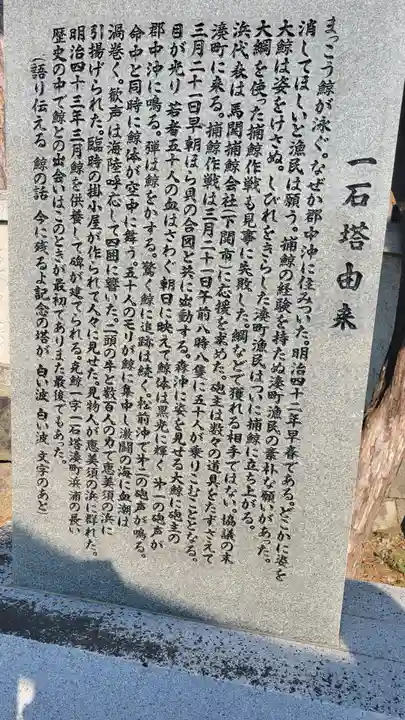 一石塔由来
まっこう鯨が泳ぐ。なぜか郡中沖に住みついた。明治四十二年早春である。どこかに姿を
消してほしいと漁民は願う。捕鯨の経験を持たぬ湊町漁民の素朴な願いがあった。
大鯨は姿をけさぬ。しびれをきらした湊町漁民はついに捕鯨に立ち上がる。
大網を使った捕鯨作戦も見事に失敗した。鯛などで獲れる相手ではない。協議の末
浜代表は馬関捕鯨会社(下関市)に応援を求めた。砲主は数々の道具をたずさえて
湊町に来る。捕鯨作戦は三月二十一日午前八時八隻に五十人が乗りこむこととなる。
三月二十一日早朝ほら貝の合図と共に出動する。森沖に姿を見せる大鯨に砲主の
目が光り 若者五十人の血はさわぐ 朝日に映えて鯨体は黒光に輝く 第一の砲声が
郡中沖に鳴る。弾は鯨をかする。驚く鯨に追跡は続く。松前沖で第二の砲声が鳴る。
命中と同時に鯨体が空中に舞う。五十人のモリが鯨に集中し激闘の海に血潮は
渦巻く。歓声は海陸呼応して四囲に響いた。二頭の牛と数百人の力で恵美須の浜に
引揚げられた。臨時の掛小屋が作られて人々に見せた。見物人が恵美須の浜に群れた。
明治四十三年三月鯨を供養して碑が建てられる。克鯨一字一石塔湊町浜浦の長い
歴史の中で鯨との出会いはこのときが最初でありまた最後でもあった。
(語り伝える 鯨の話 今に残るよ記念の塔が 白い波 白い波 文字のあと)